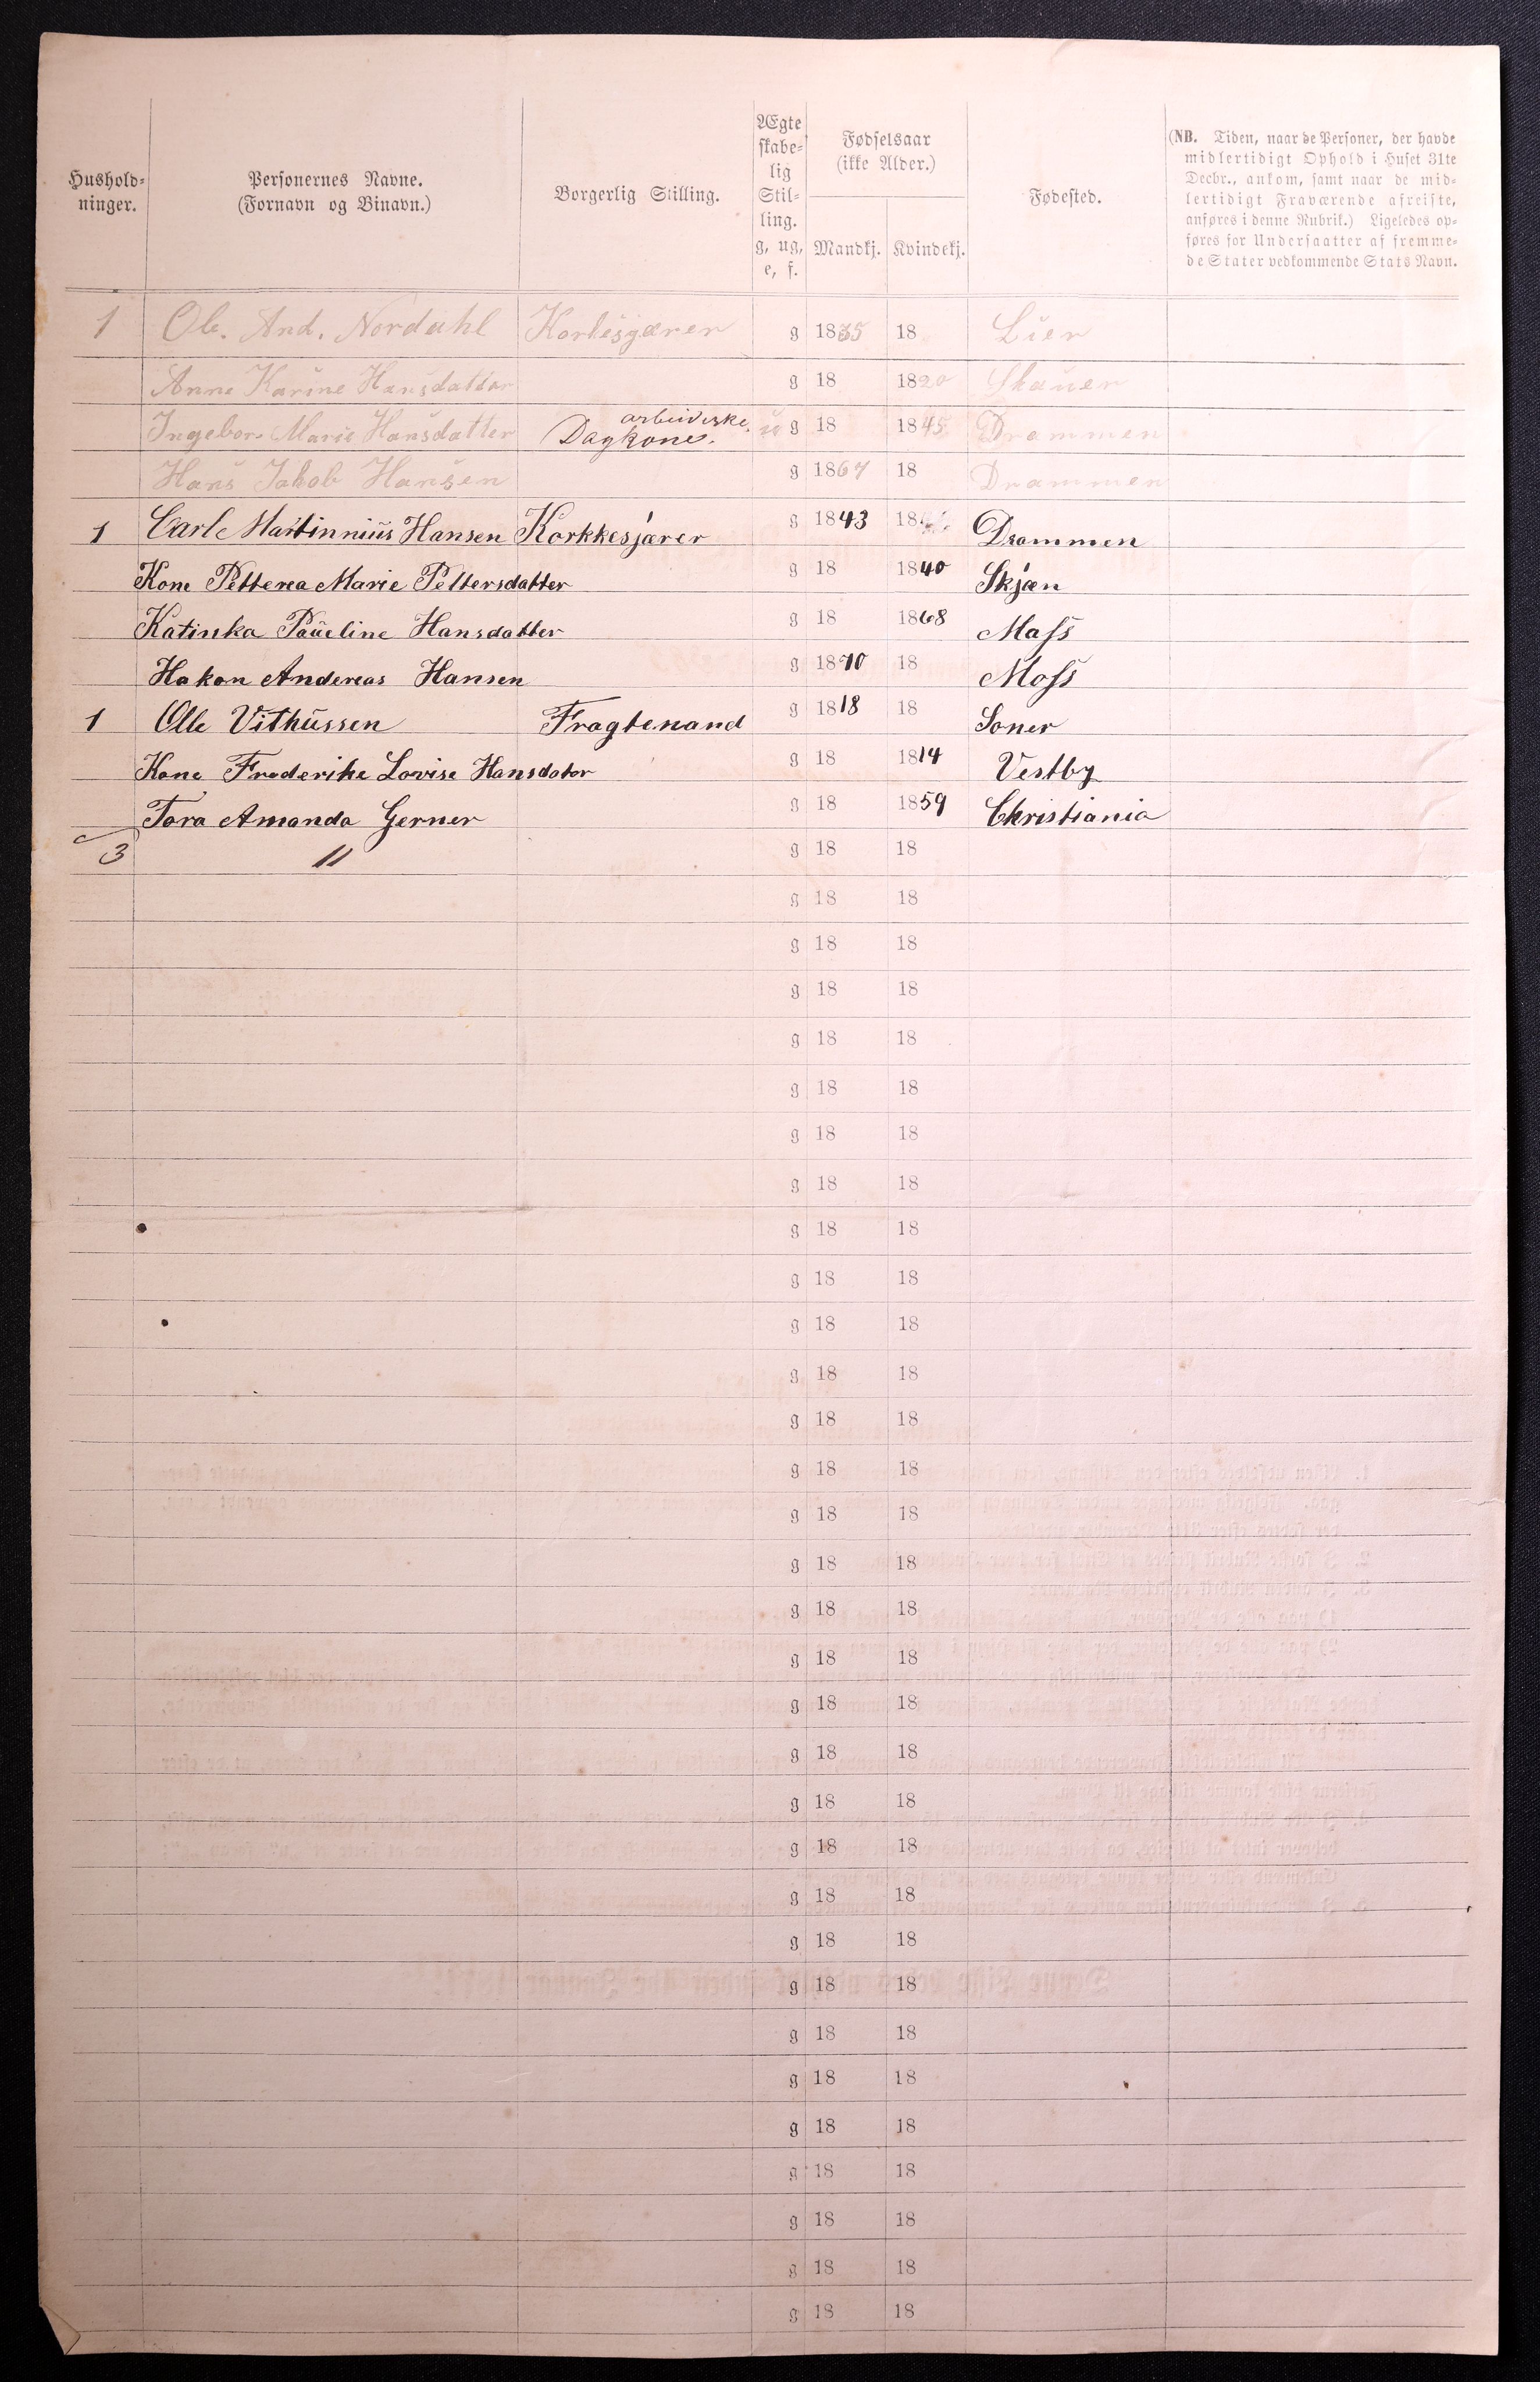 Hushold-
ninger.
Personernes Navne.
(Fornavn og Binavn.)
Borgerlig Stilling.
Ægte
skabe-
lig
Stil-
ling.
g, ug,
e, f.
Fødselsaar
(ikke Alder.)
Mandkj. Kvindekj.
Fødested.
(NB. Tiden, naar de Personer, der havde
midlertidigt Ophold i Huset 31te
Decbr., ankom, samt naar de mid-
lertidigt Fraværende afreiste,
anføres i denne Rubrik.) Ligeledes op-
føres for Undersaatter af fremme-
de Stater vedkommende Stats Navn.
1 Ole. And. Nordahl Korkesjærer g 1835 18 Lier
Anne Karine Hansdatter g 18 1820 Skauer
Ingebor Marie Hansdatter arbeiderske. Dagkone. u g 18 1845 Drammen
Hans Jakob Hansen g 1867 18 Drammen
1 Carl Martinniüs Hansen Korkkesjærer g 1843 18 Drammen
Kone Petterea Marie Pettersdatter g 18 1840 Skjæn
Katinka Paüeline Hansdatter g 18 1868 Moss
Hakon Andereas Hansen g 1870 18 Moss
1 Olle Vithüssen Fragtemand g 1818 18 Soner
Kone Frederike Lovise Hansdator g 18 1814 Vestby
Tora Amanda Gerner g 18 1859 Christiania
3 11 g 18 18
g 18 18
g 18 18
g 18 18
g 18 18
g 18 18
g 18 18
g 18 18
g 18 18
g 18 18
g 18 18
g 18 18
g 18 18
g 18 18
g 18 18
g 18 18
g 18 18
g 18 18
g 18 18
g 18 18
g 18 18
g 18 18
g 18 18
g 18 18
g 18 18
g 18 18
g 18 18
g 18 18
g 18 18
g 18 18
g 18 18
g 18 18